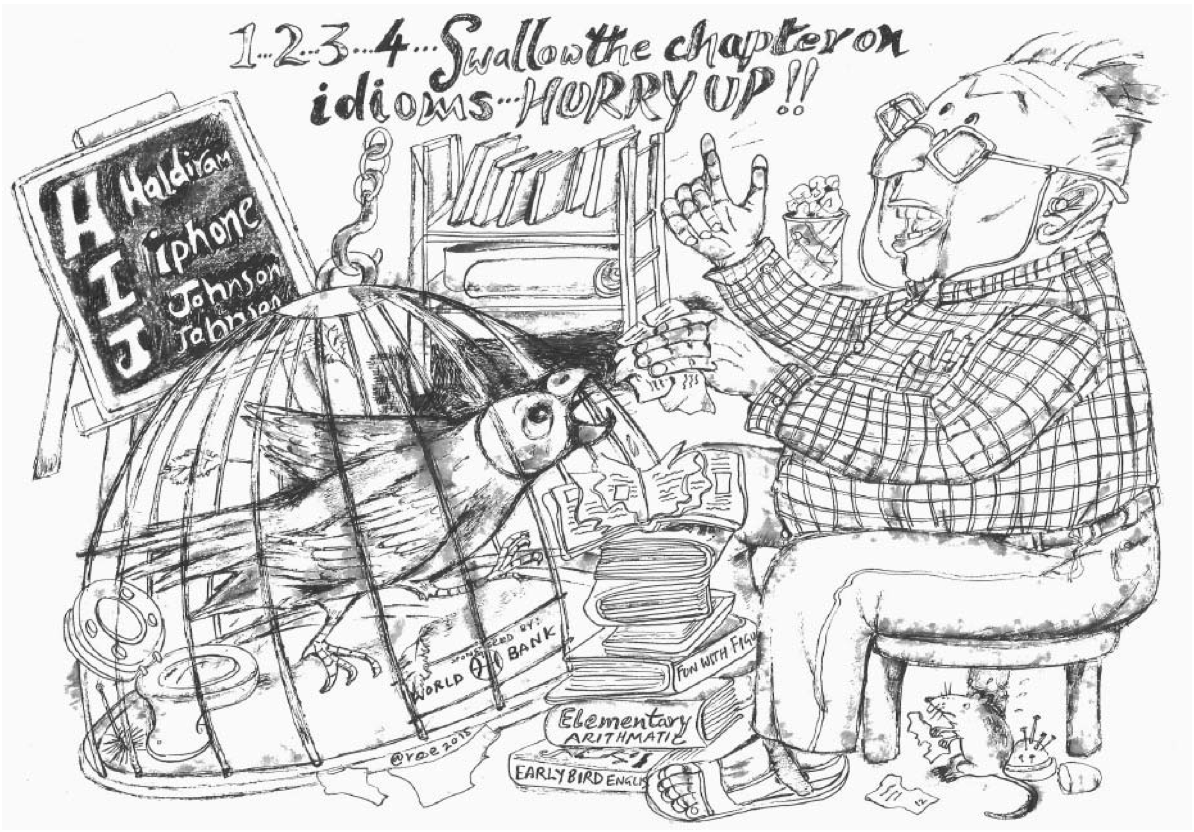 1...2...3...4...Swallow the chapter on
idioms...HURRY UP!!
H Haldiram
I iphone
J Johnson
Johnson
SPONSORED BY:
WORLD BANK
FUN WITH FIGU
Elementary
ARITHMATIC
EARLY BIRD ENGLIS
@ree 2015